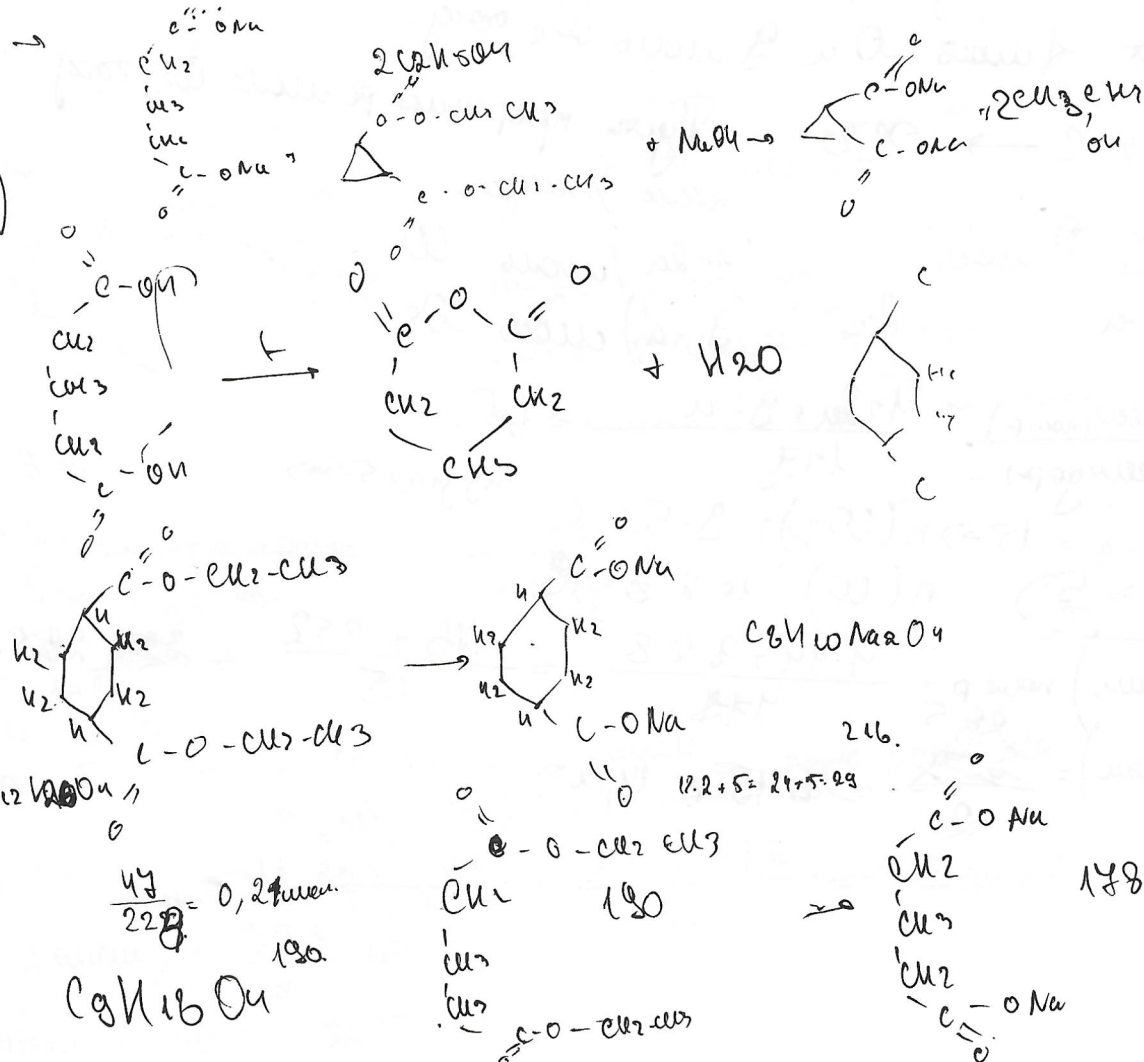 →
C - ONa
CH2
CH3
CH2
C - ONa
O
2C2H5OH
O - O - CH2 CH3
C - O - CH2 - CH3
O
+ NaOH →
O
C - ONa
C - ONa
O
2CH3CH2
OH
O
C - OH
CH2
CH3
CH2
C - OH
O
t
O
O
O
C
C
CH2
CH2
CH3
+ H2O
C
C
O
C - O - CH2 - CH3
H
H2
H2
H2
H2
H
C - O - CH2 - CH3
O
→
O
C - ONa
H
H2
H2
H2
H2
H
C - ONa
O
C8H10Na2O4
216.
12·2+5=24+5=29
47/228 = 0,21 мол.
190
C9H18O4
O
C - O - CH2 CH3
CH2
CH3
CH3
C - O - CH2 - CH3
O
190
O
C - O Na
CH2
CH3
CH2
C - O Na
O
178